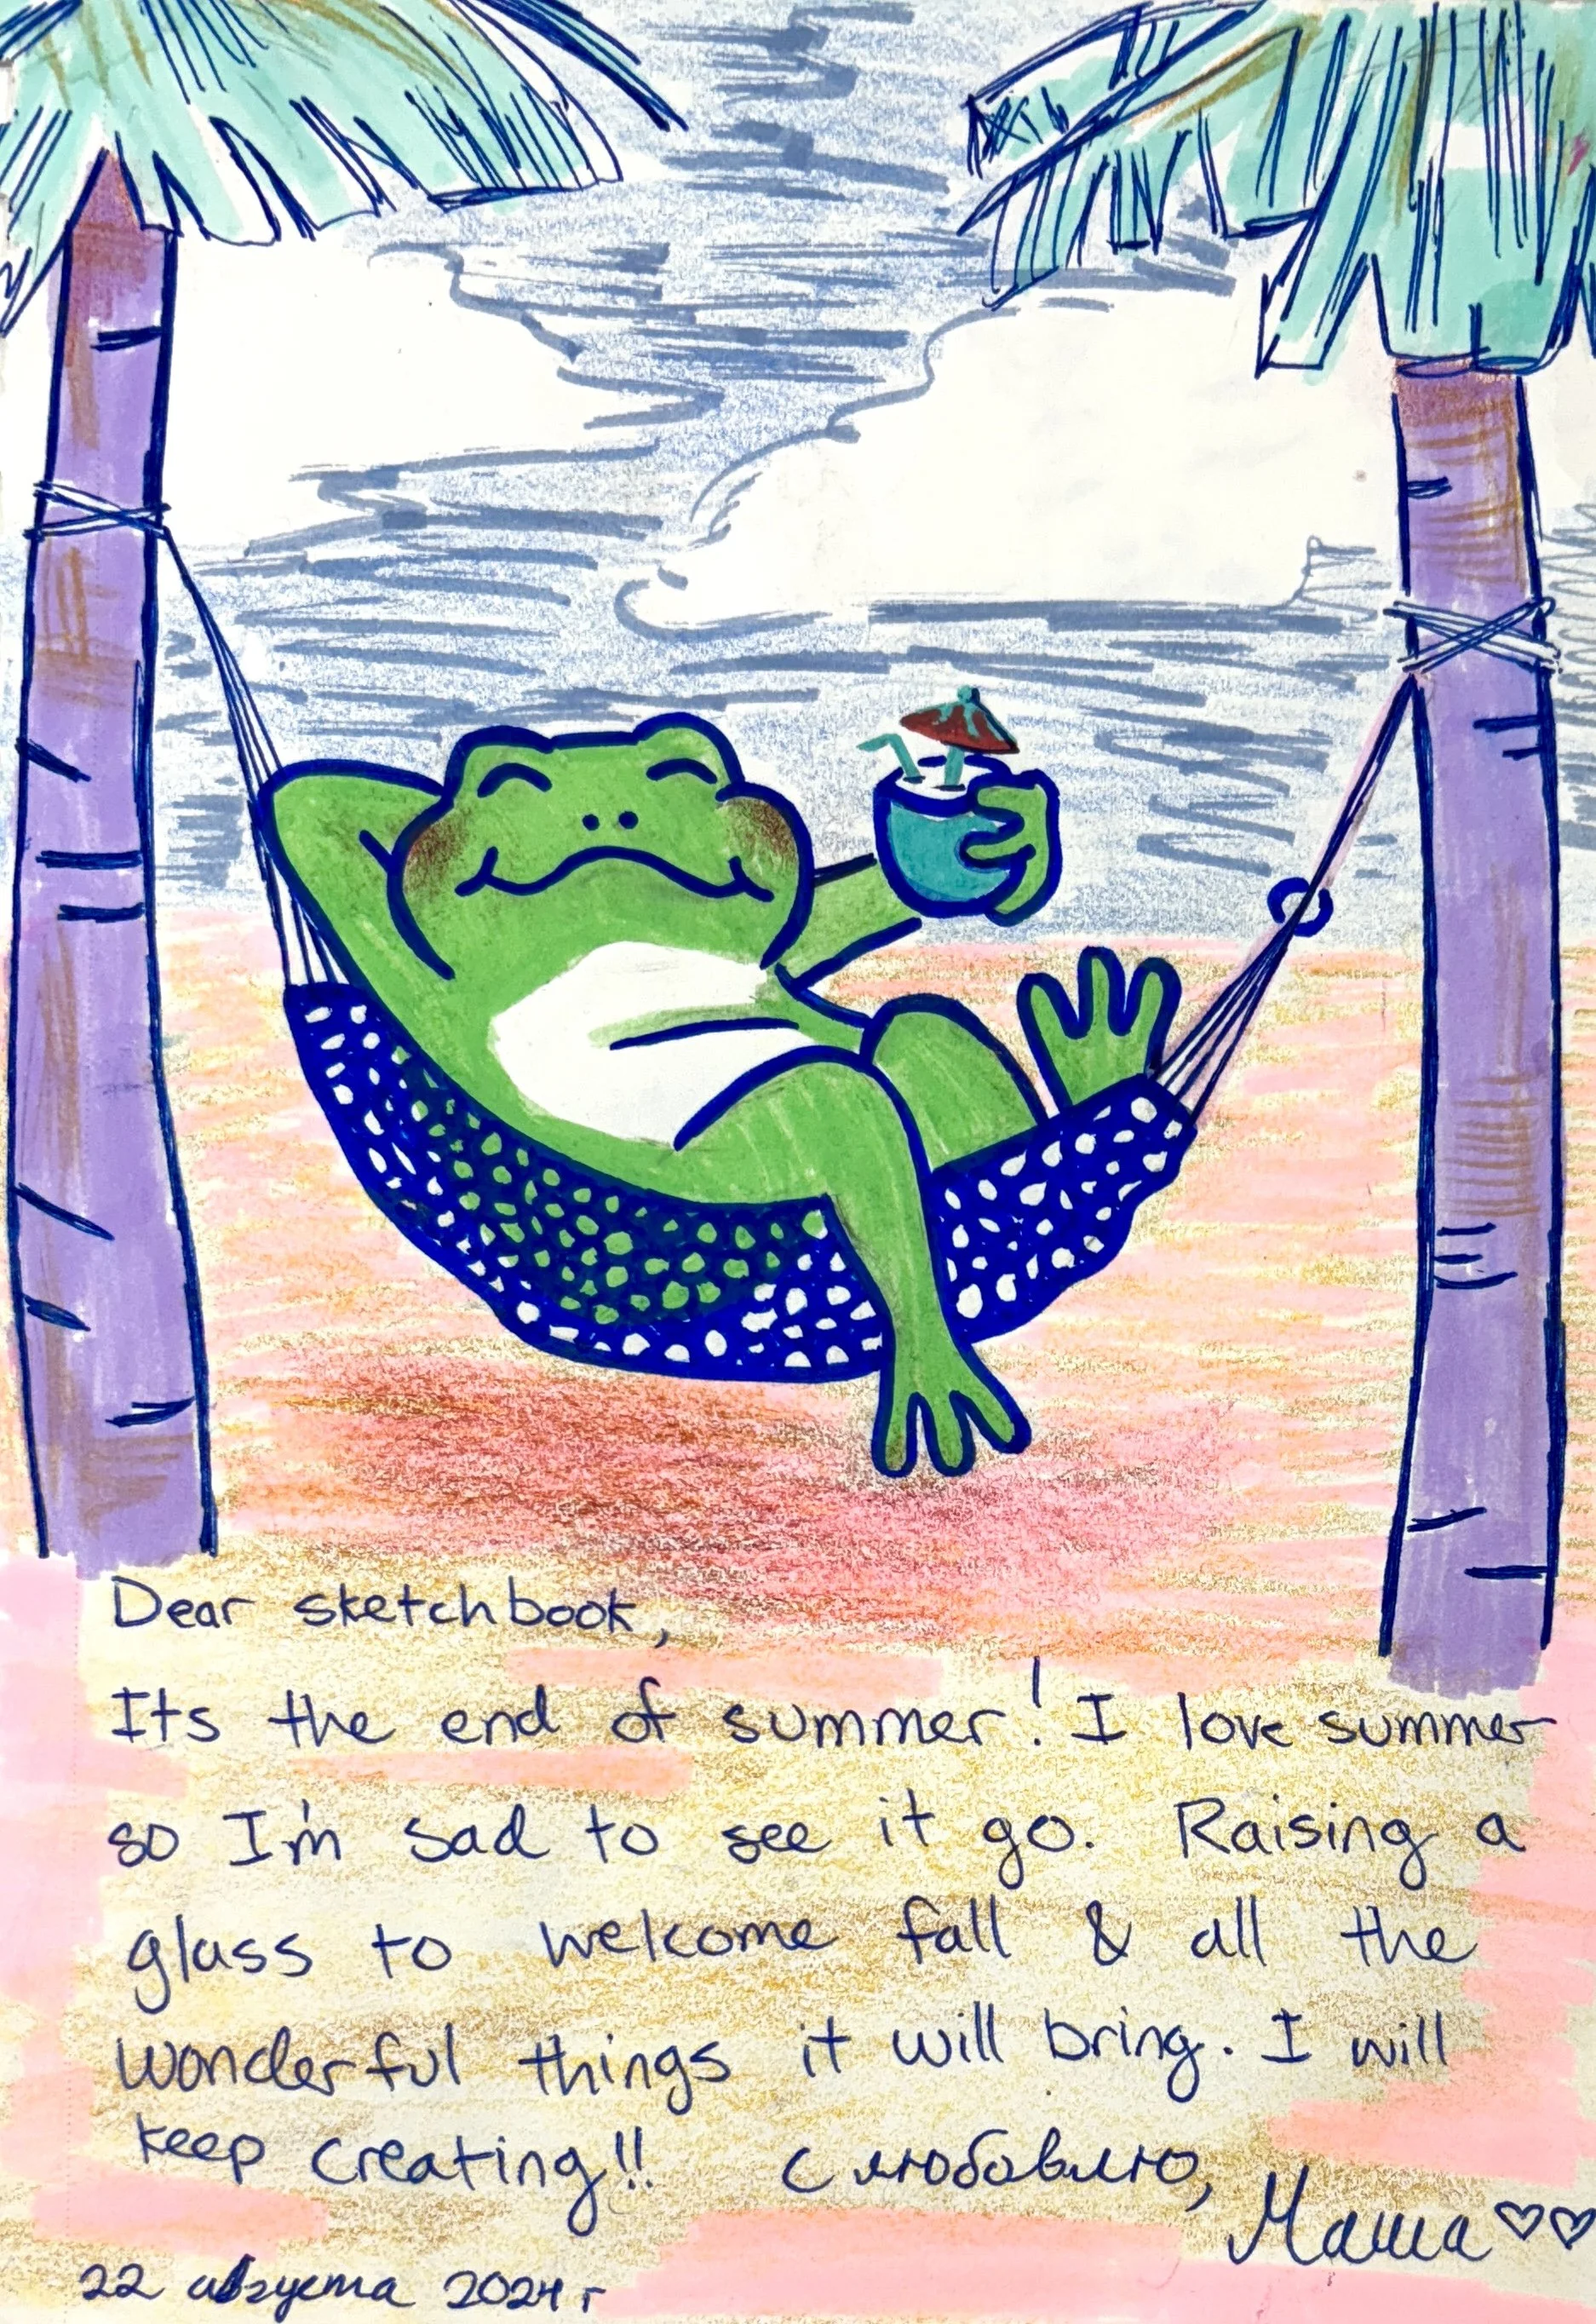 Dear sketchbook,
Its the end of summer! I love summer
so I'm sad to see it go. Raising a
glass to welcome fall & all the
wonderful things it will bring. I will
keep creating!! с любовлю,
Маша ♡♡
22 августа 2024 г